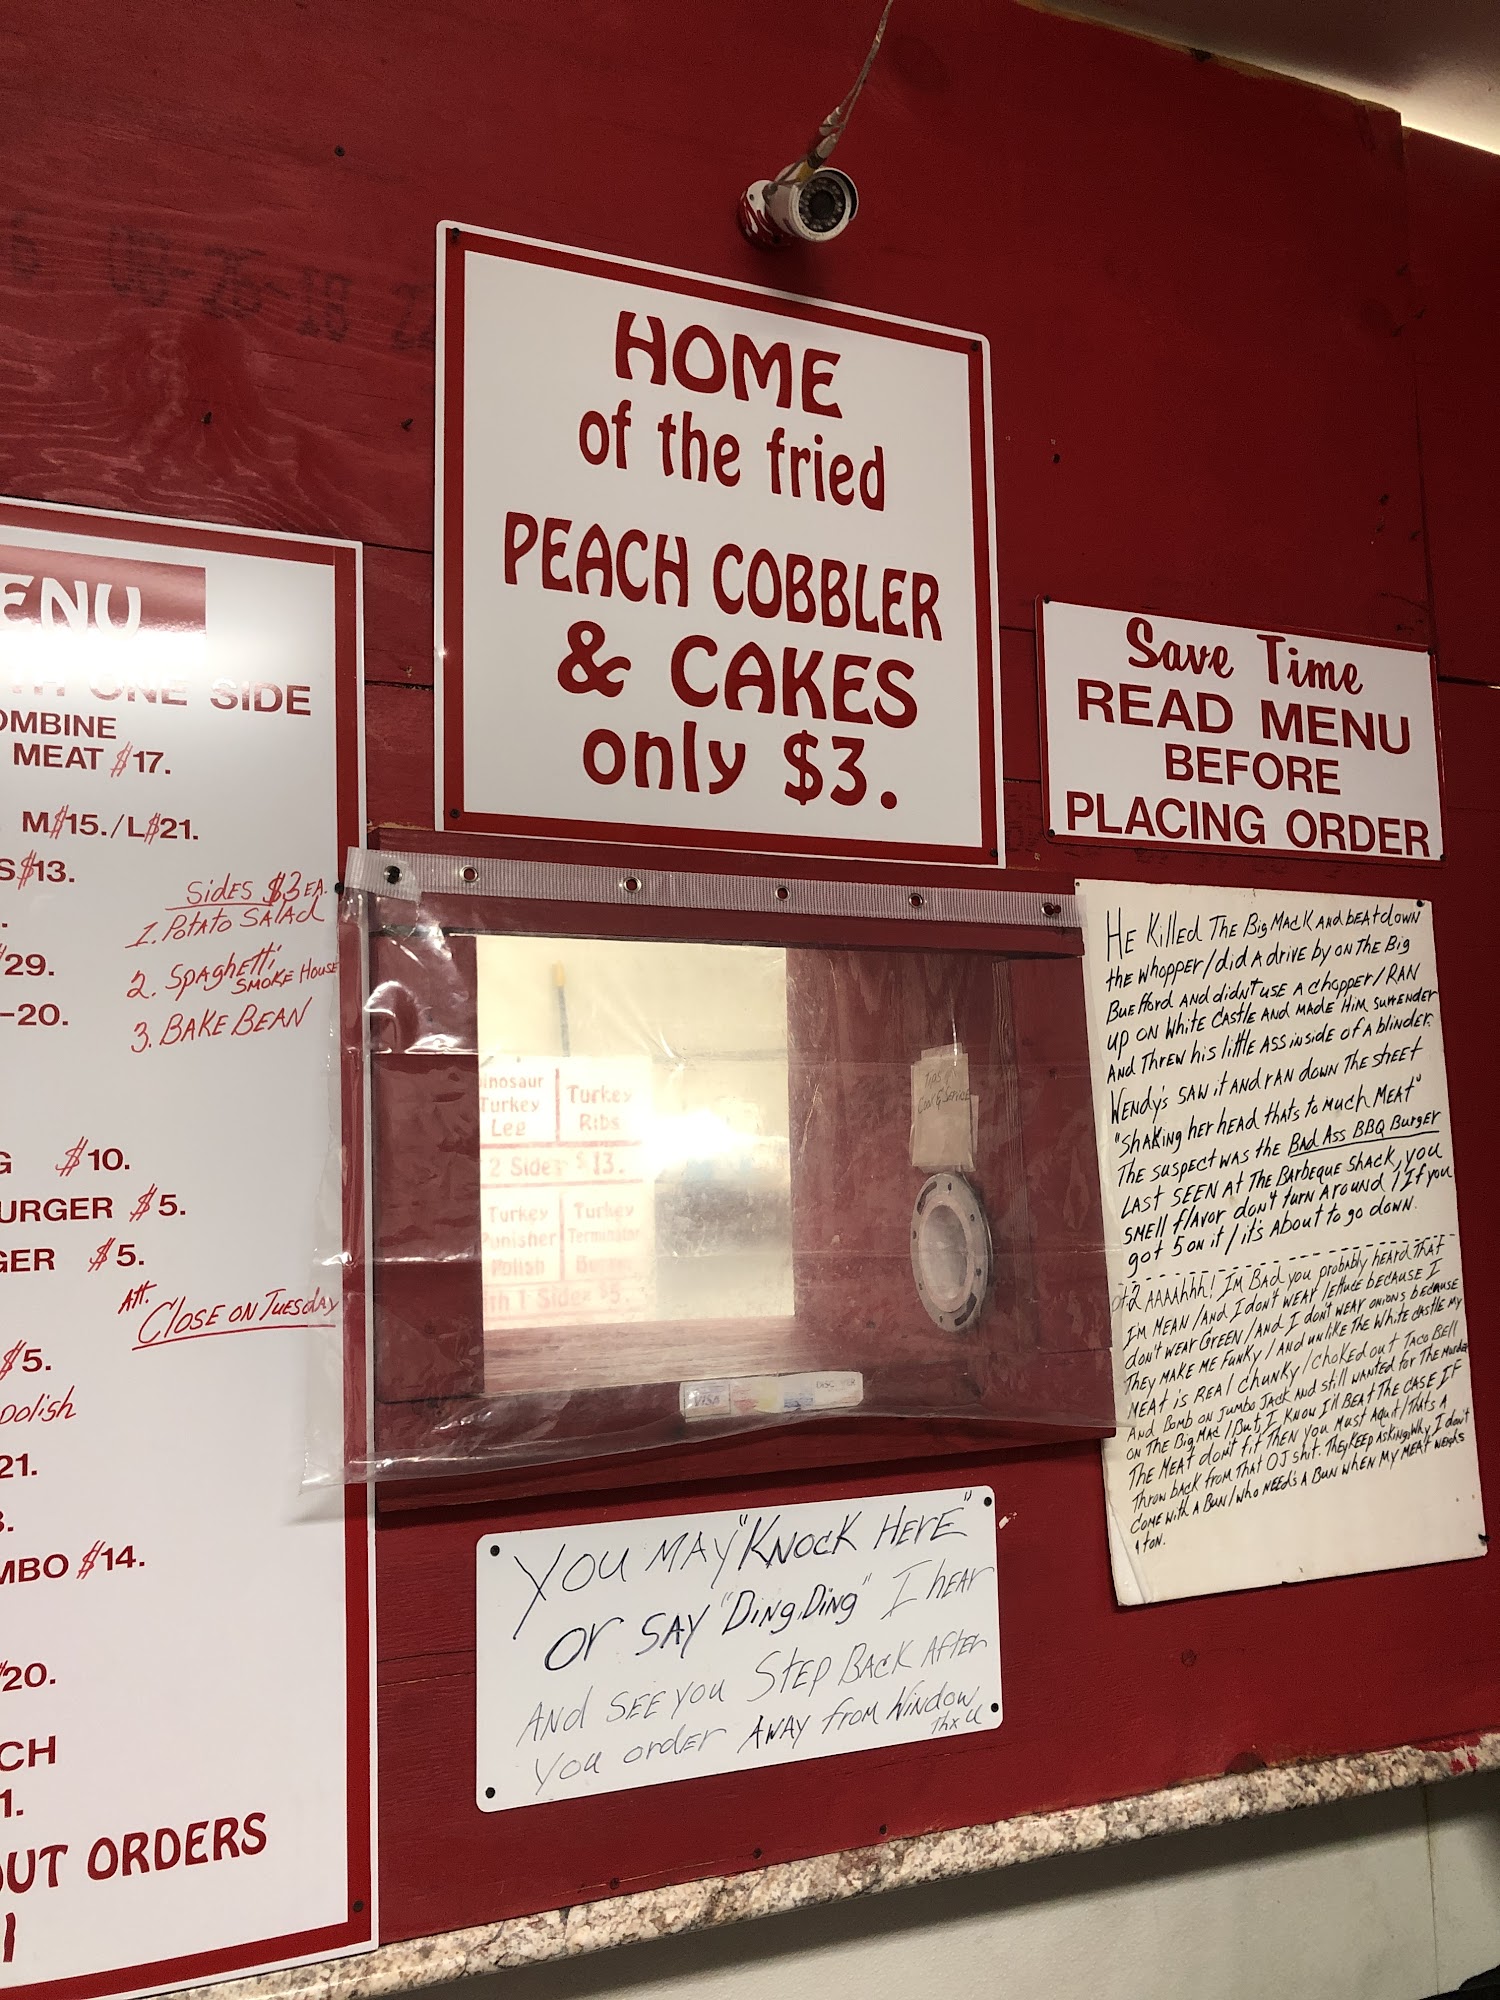 HOME
of the fried
PEACH COBBLER
& CAKES
only $3.
Save Time
READ MENU
BEFORE
PLACING ORDER
ENU
ONE SIDE
OMBINE
MEAT $17.
M$15./L$21.
S$13.
$29.
-20.
Sides $3 EA.
1. Potato Salad
2. Spaghetti
Smoke House
3. BAKE BEAN
G $10.
URGER $5.
GER $5.
Att.
Close on Tuesday
$5.
Polish
21.
MBO $14.
$20.
CH
1.
OUT ORDERS
inosaur
Turkey
Leg
Turkey
Ribs
2 Sides $13.
Turkey
Punisher
Polish
Turkey
Terminator
Burger
ith 1 Side $5.
VISA
He Killed The Big Mack and beat down
the whopper/did A drive by on The Big
Buefford and didn't use a chopper/RAN
up on White Castle and made Him surrender
And Threw his little Ass inside of a blinder.
Wendy's saw it and ran down The sheet
"Shaking her head thats to much Meat"
The suspect was the Bad Ass BBQ Burger
Last seen at The Barbeque Shack, you
smell flavor don't turn around / If you
got 5 on it / it's About to go down.
pt 2 AAAAhhh! I'm Bad you probably heard That
I'm MEAN/And I don't wear lettuce because I
don't wear Green/And I don't wear onions because
They make me funky/And unlike The White Castle my
Meat is Real Chunky/choked out Taco Bell
And Bomb on Jumbo Jack and still wanted for The Murder
on The Big Mac/But, I know I'll Beat The case If
The Meat don't fit Then you Must Aquit/Thats A
Throw back from That OJ shit. They keep asking Why I don't
Come with A Bun/who needs A Bun when My meat weighs
a ton.
You may "Knock Here"
or say "Ding,Ding" I hear
And see you Step Back After
You order Away from Window
Thx U